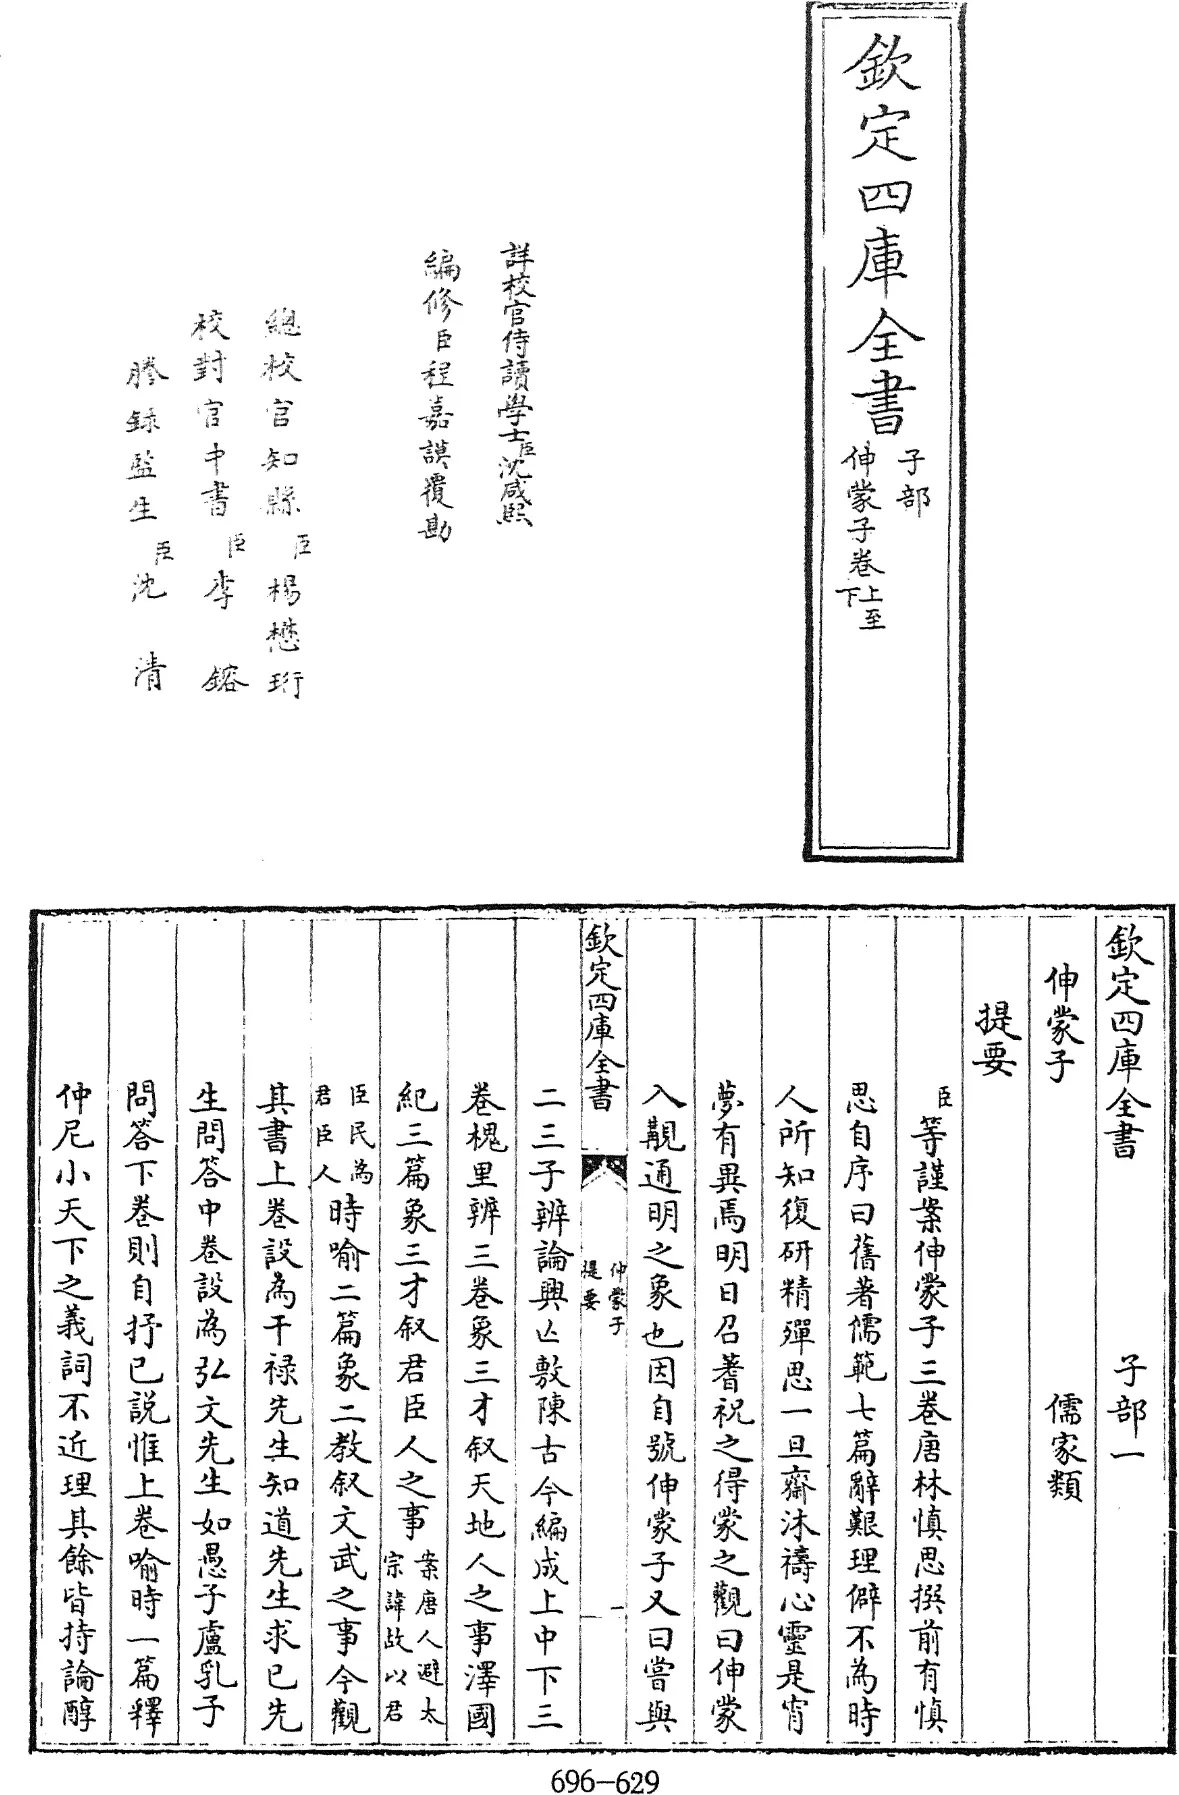 欽定四庫全書
子部
伸蒙子卷上至下
詳校官侍讀學士臣沈咸熙
編修臣程嘉謨覆勘
總校官知縣臣楊懋珩
校對官中書臣李鎔
謄録監生臣沈清
欽定四庫全書 子部一
伸蒙子 儒家類
提要
臣等謹案伸蒙子三卷唐林慎思撰前有慎
思自序曰舊著儒範七篇辭艱理僻不為時
人所知復研精殫思一旦齋沐禱心靈是宵
夢有異焉明日召蓍祝之得蒙之觀曰伸蒙
入觀通明之象也因自號伸蒙子又曰嘗與
欽定四庫全書 伸蒙子提要 一
二三子辨論興亡敷陳古今編成上中下三
卷槐里辨三卷象三才叙天地人之事澤國
紀三篇象三才叙君臣人之事案唐人避太宗諱故以君
臣民為君臣人時喻二篇象二教叙文武之事今觀
其書上卷設為干禄先生知道先生求已先
生問答中卷設為弘文先生如愚子盧乳子
問答下卷則自抒已說惟上卷喻時一篇釋
仲尼小天下之義詞不近理其餘皆持論醇
696-629